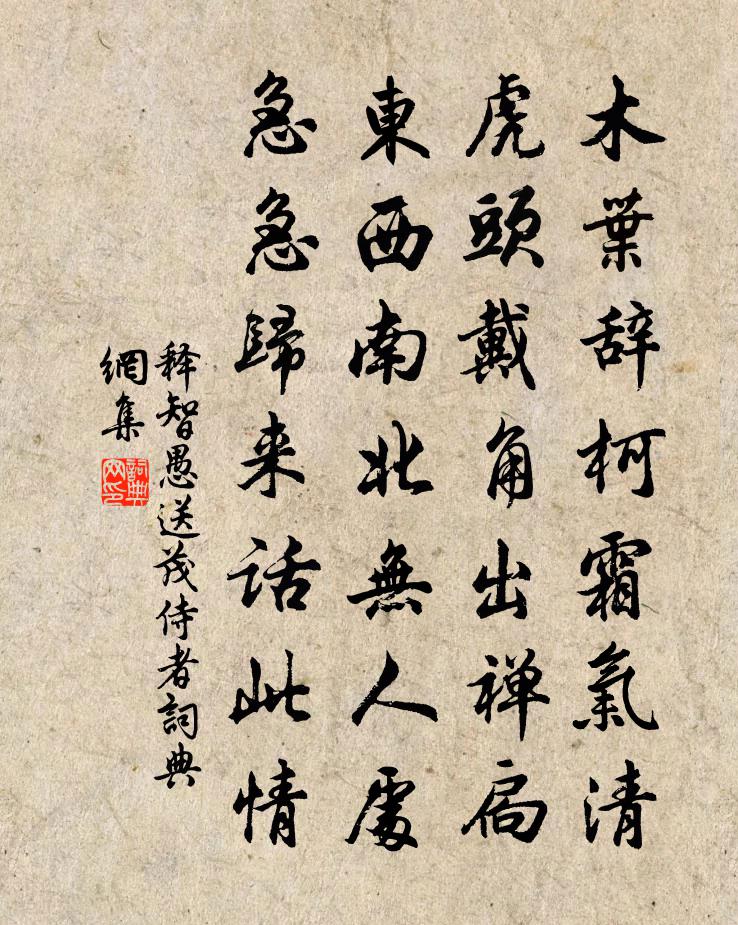 木葉辞柯霜氣清
虎頭戴角出禅扃
東西南北無人處
急急歸来话此情
释智愚送茂侍者詞典
網集
詞典
网印